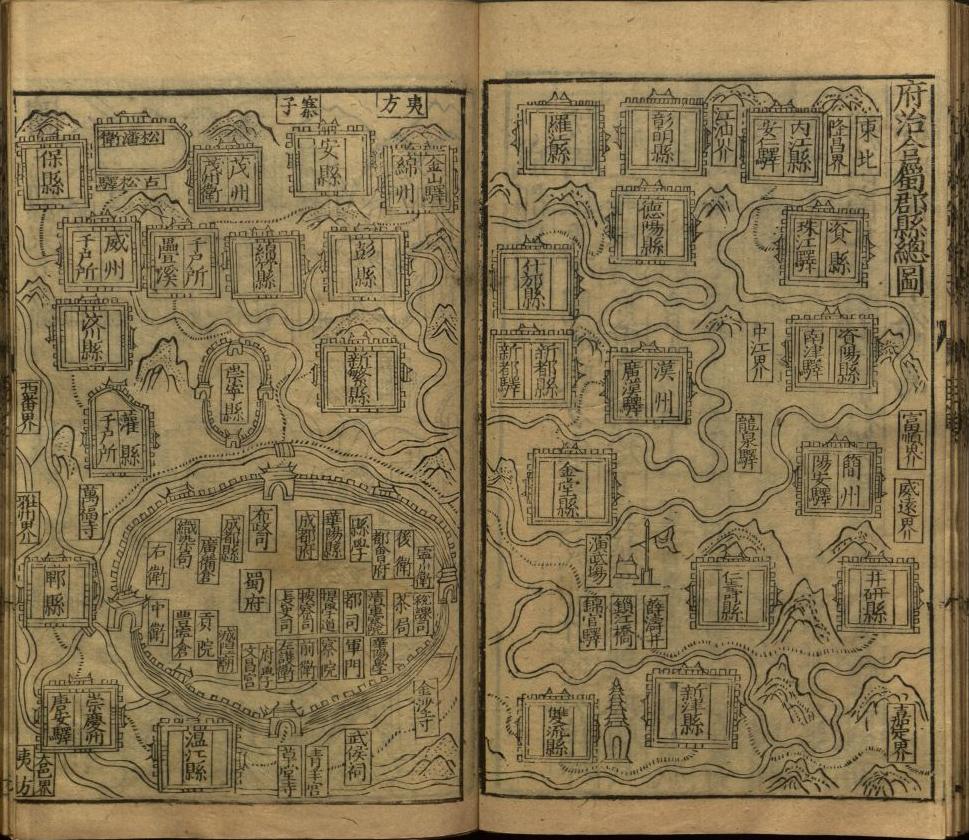 府治合蜀郡縣總圖
東北
隆昌界
内江縣
安仁驛
江油界
彰明縣
羅江縣
德陽縣
資縣
珠江驛
什邡縣
資陽縣
南津驛
中江界
漢州
廣漢驛
新都縣
新都驛
富順界
威遠界
龍泉驛
簡州
陽安驛
金堂縣
演武場
井研縣
仁壽縣
薛濤井
鎖江橋
錦官驛
嘉定界
新津縣
雙流縣
夷方
寨子
金山驛
綿州
安縣
茂州
茂衛
松潘衛
古松驛
保縣
彭縣
績縣
千戶所
疊溪
威州
千戶所
汶川縣
新繁縣
崇寧縣
西番界
灌縣
千戶所
萬福寺
雅州界
郫縣
布政司
成都縣
織染局
廣備倉
右衛
成都府
華陽縣
縣學
都督府
後衛
蜀府
中衛
豐寧倉
貢院
長史司
按察司
都司
茶局
府學
文昌宮
前衛
察院
軍門
金沙寺
崇慶州
唐安驛
溫江縣
草堂寺
青羊宮
武侯祠
大邑界
夷方